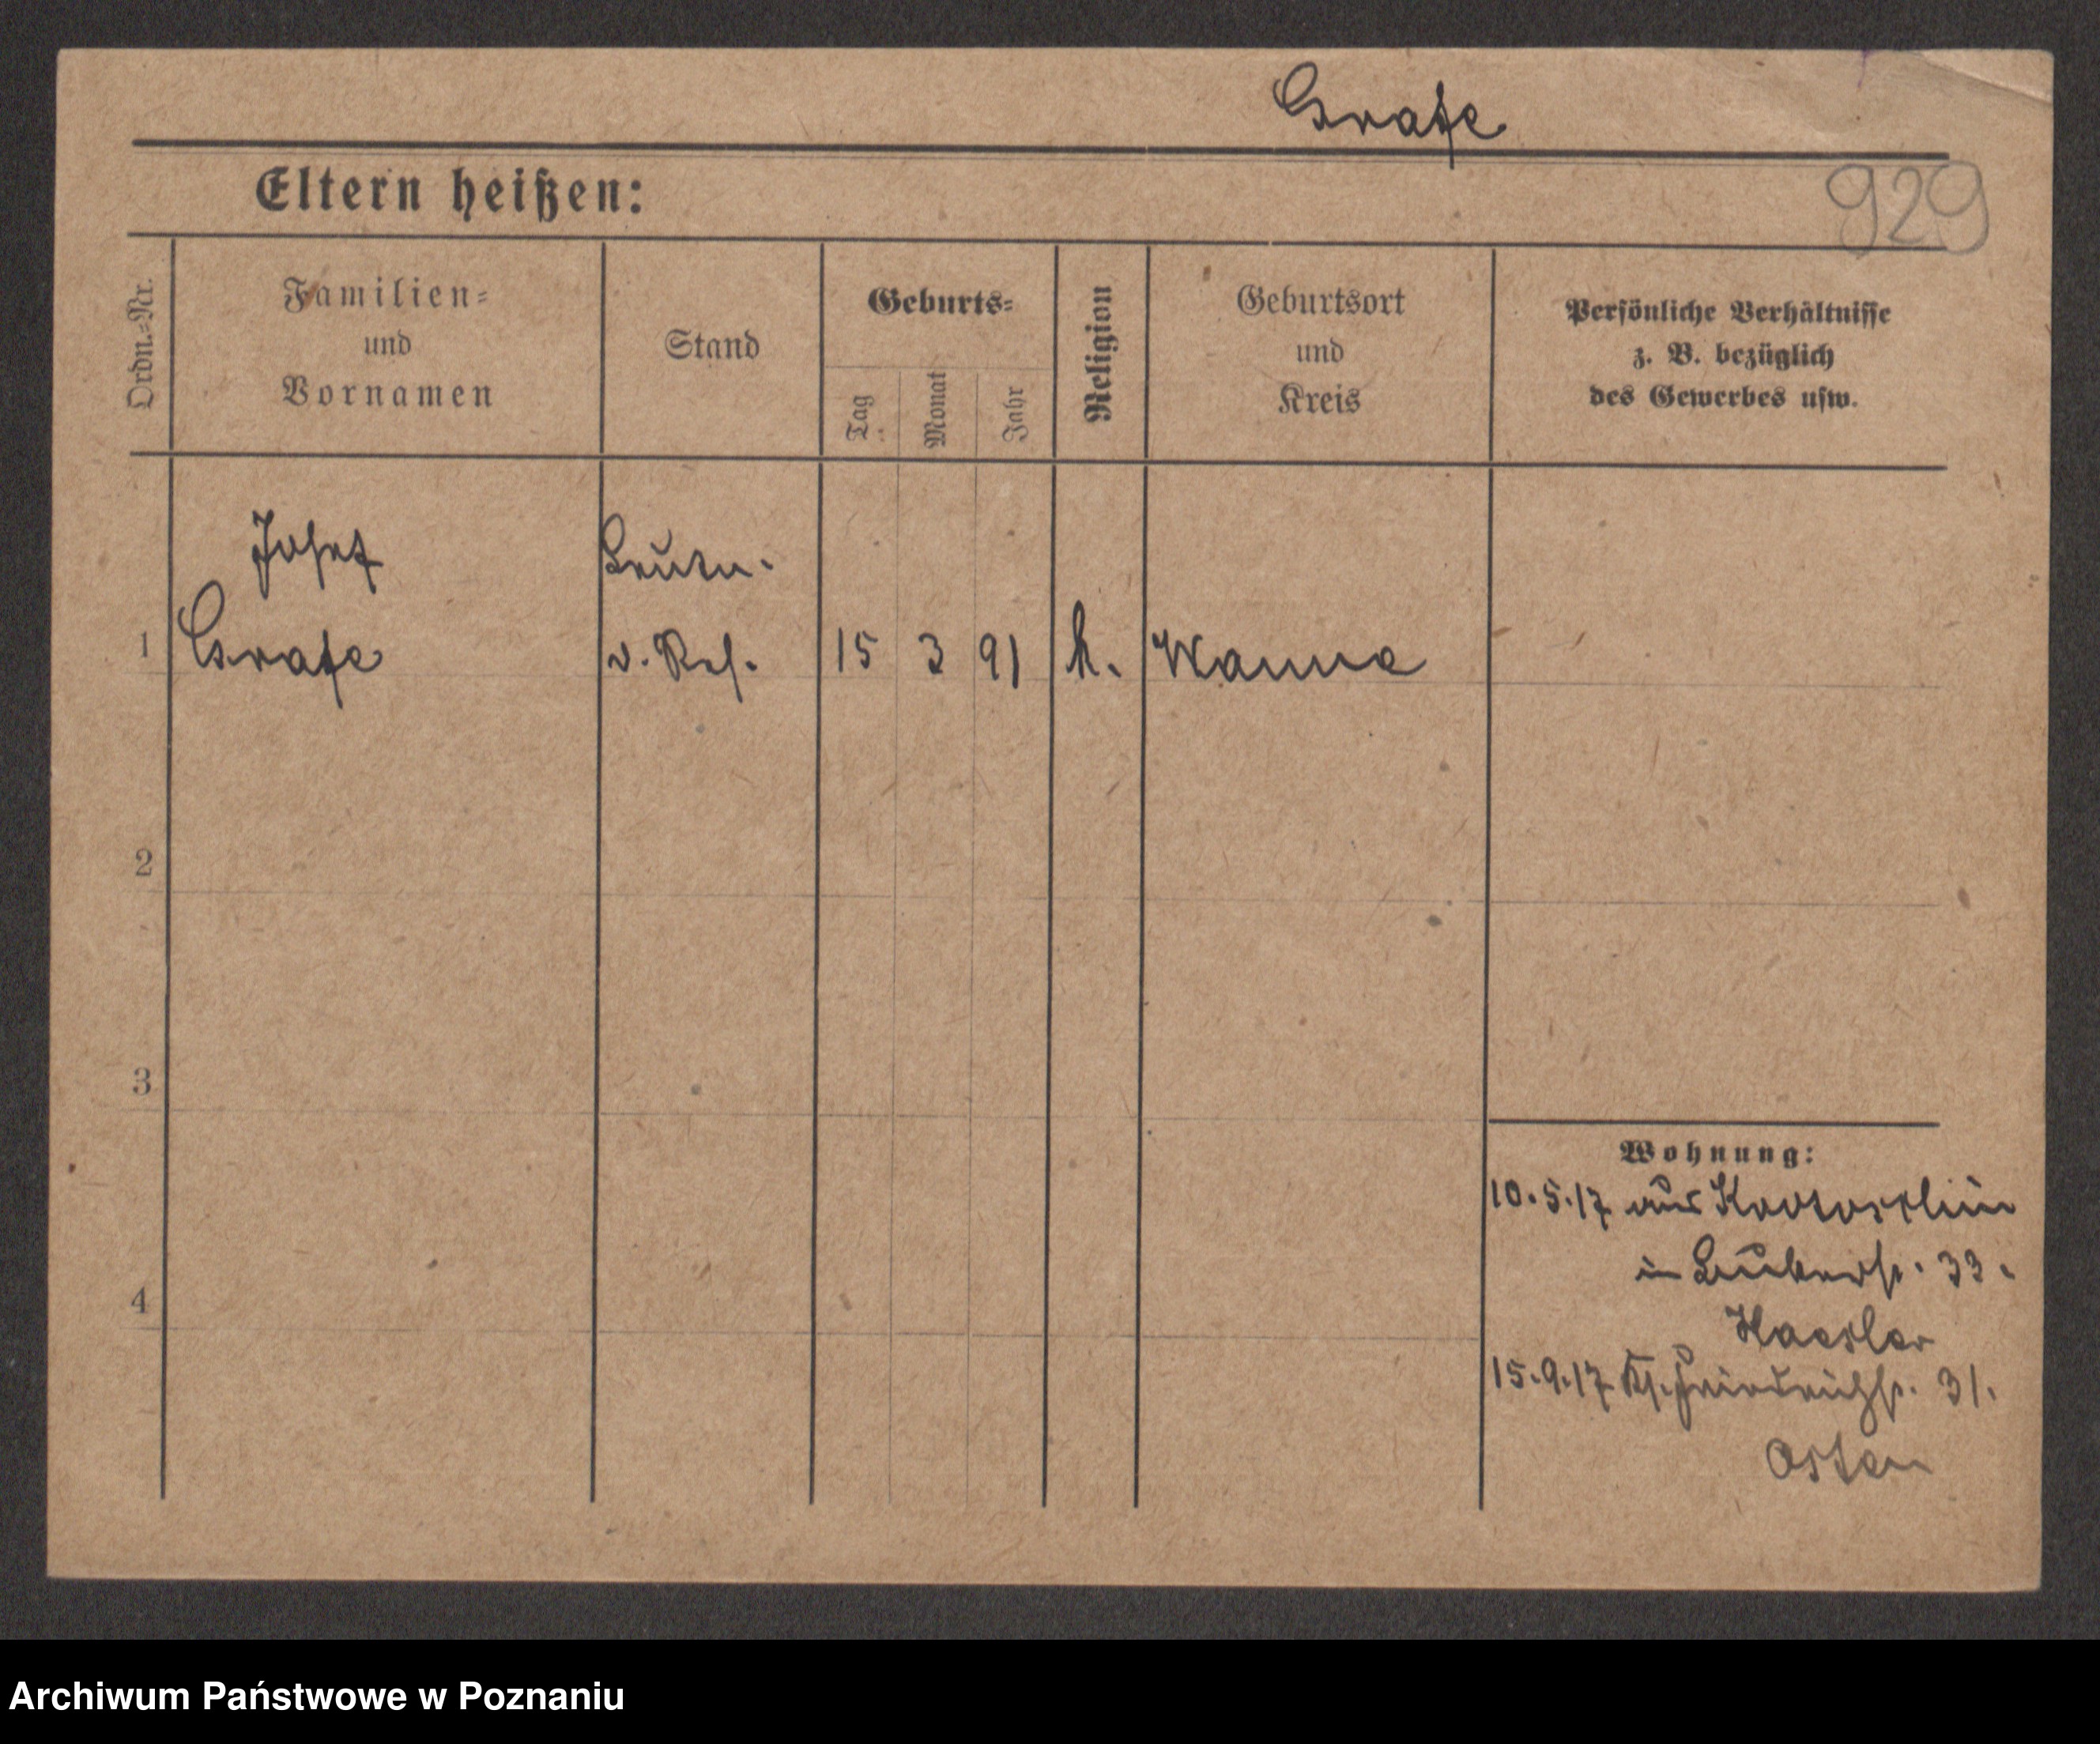 Grafe
Eltern heißen:
929
Ordn.-Nr.
Familien-
und
Vornamen
Stand
Geburts-
Tag
Monat
Jahr
Religion
Geburtsort
und
Kreis
Persönliche Verhältnisse
z. B. bezüglich
des Gewerbes usw.
Josef
Leutn.
1 Grafe d. Res. 15 3 91 k. Wanne
2
3
4
Wohnung:
10.5.17 aus Krotoschin
in 33.
Haesler
15.9.17 Friedrichstr. 31.
Osten
Archiwum Państwowe w Poznaniu